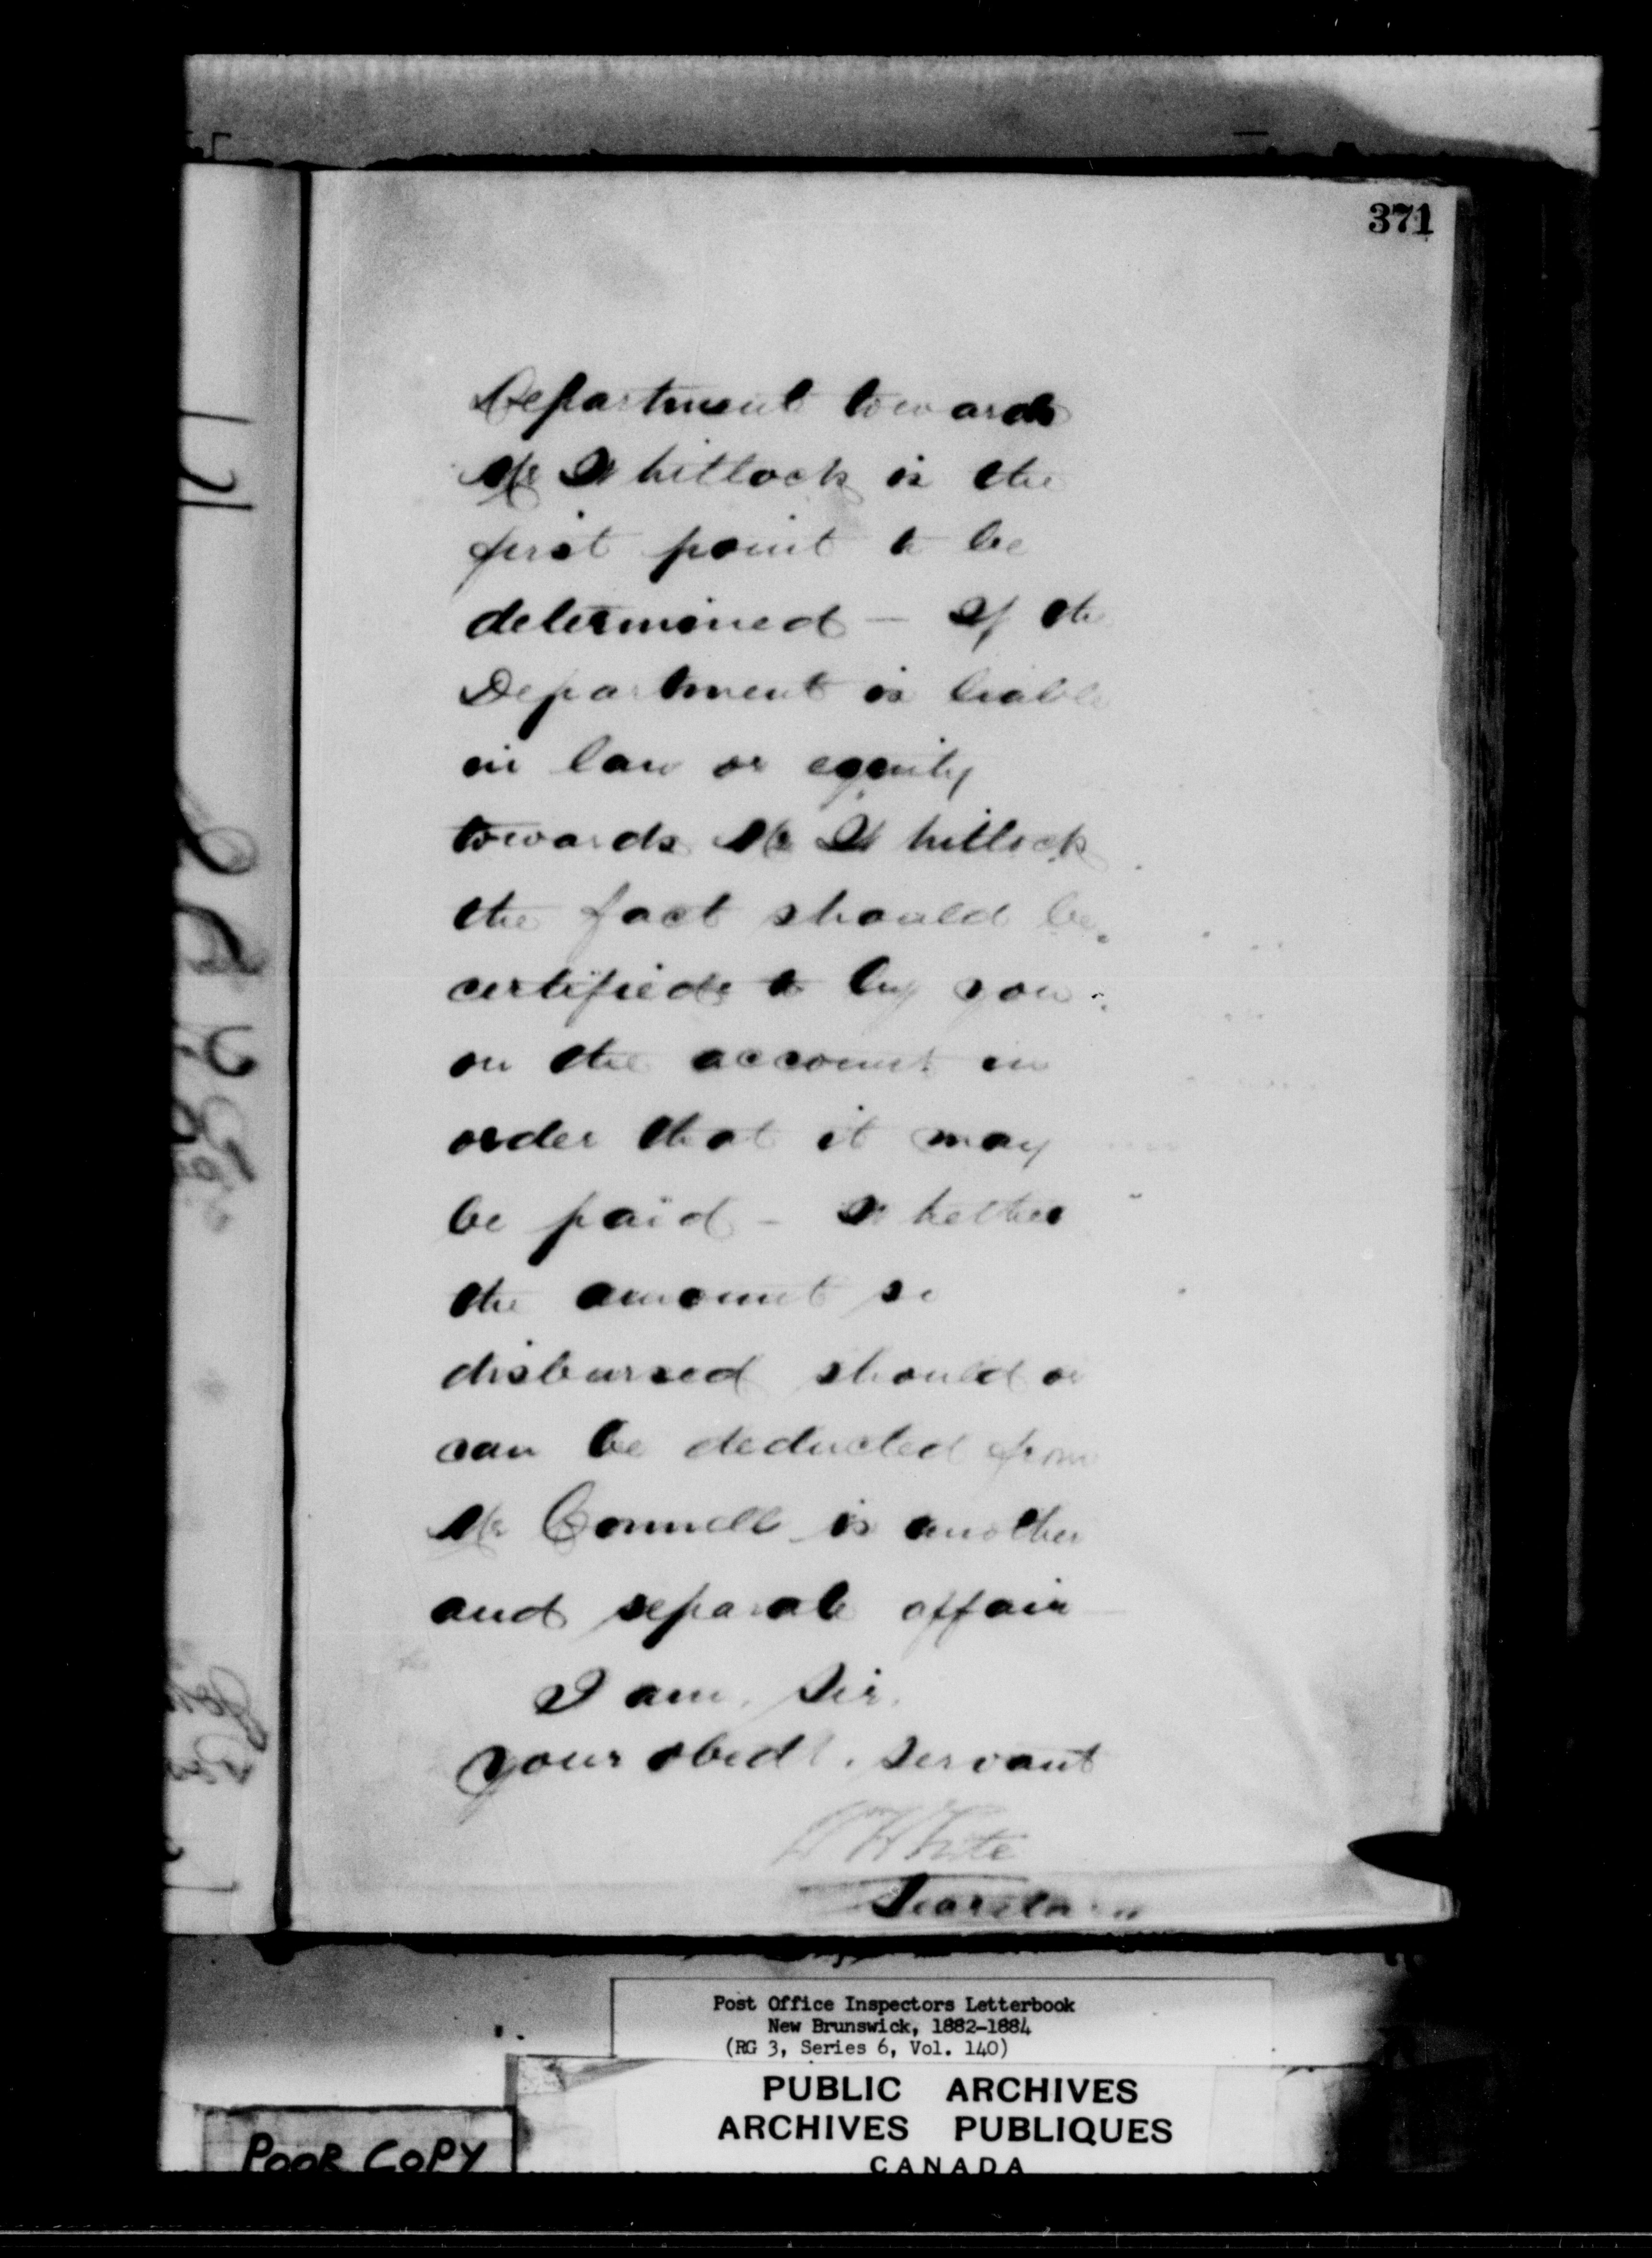 371
Department towards
Mr Whitlock is the
first point to be
determined — If the
Department is liable
in law or equity
towards Mr Whitlock
the fact should be
certified to by you
on the account in
order that it may
be paid — Whether
the amount so
disbursed should or
can be deducted from
Mr Connell is another
and separate affair
I am, Sir,
your obedt. servant
White
Secretary
Post Office Inspectors Letterbook
New Brunswick, 1882-1884
(RG 3, Series 6, Vol. 140)
PUBLIC ARCHIVES
ARCHIVES PUBLIQUES
CANADA
POOR COPY